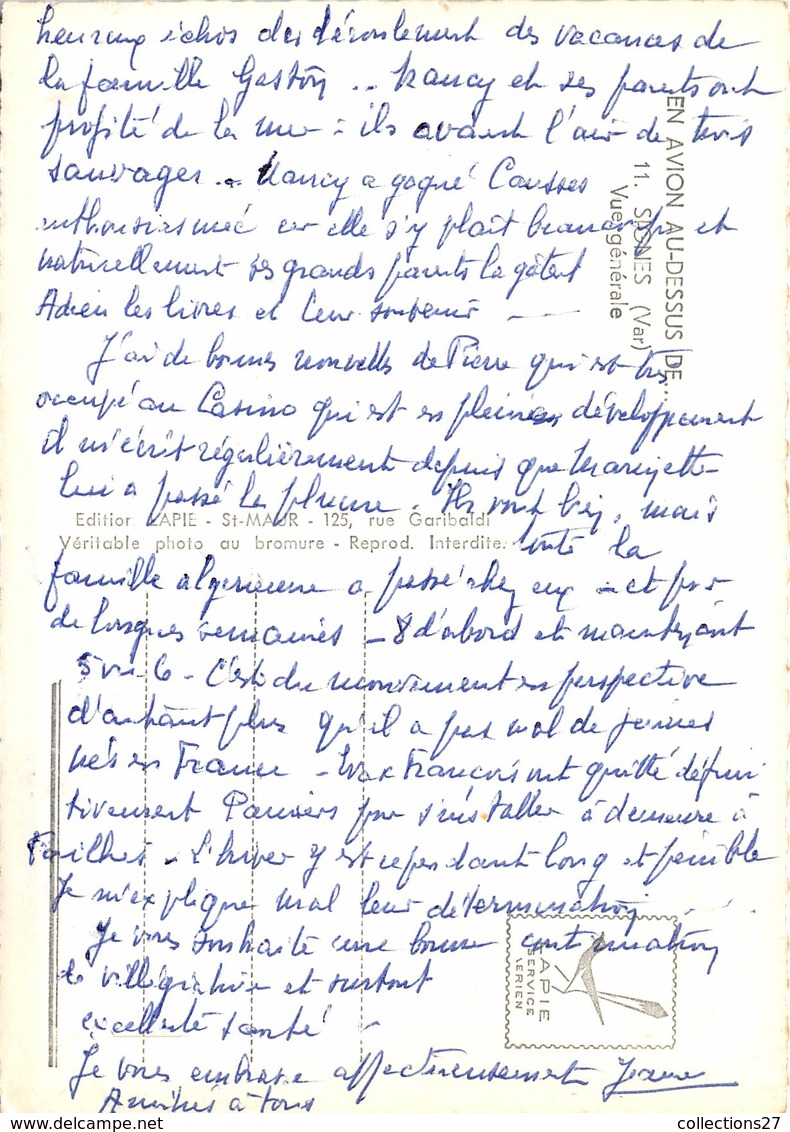 heureux échos du déroulement des vacances de
la famille Gaston .. Nancy et ses parents ont
profité de la mer : ils avaient l'air de trois
sauvages .. Nancy a gagné Causses
enthousiasmée car elle s'y plaît beaucoup et
naturellement ses grands parents la gâtent
Adieu les livres et leur souvenir —
J'ai de bonnes nouvelles de Pierre qui est très
occupé au Casino qui est en plein développement
il m'écrit régulièrement depuis que Mariette
lui a passé la plume. Ils vont bien, mais
toute la
famille algérienne a passé chez eux - et pour
de longues semaines - 8 d'abord et maintenant
5 ou 6 - C'est du mouvement en perspective
d'autant plus qu'il a pas mal de jeunes
nés en France - François ont quitté défini
tivement Pamiers pour s'installer à demeure à
Failhes . L'hiver y est cependant long et pénible
Je m'explique mal leur détermination . .
Je vous souhaite une bonne continuation
de villégiature et surtout
excellente santé
Je vous embrasse affectueusement
Amitiés à tous
EN AVION AU-DESSUS DE...
11. SIGNES (Var)
Vue générale
Edition LAPIE - St-MAUR - 125, rue Garibaldi
Véritable photo au bromure - Reprod. Interdite.
LAPIE
SERVICE
AERIEN
collections27